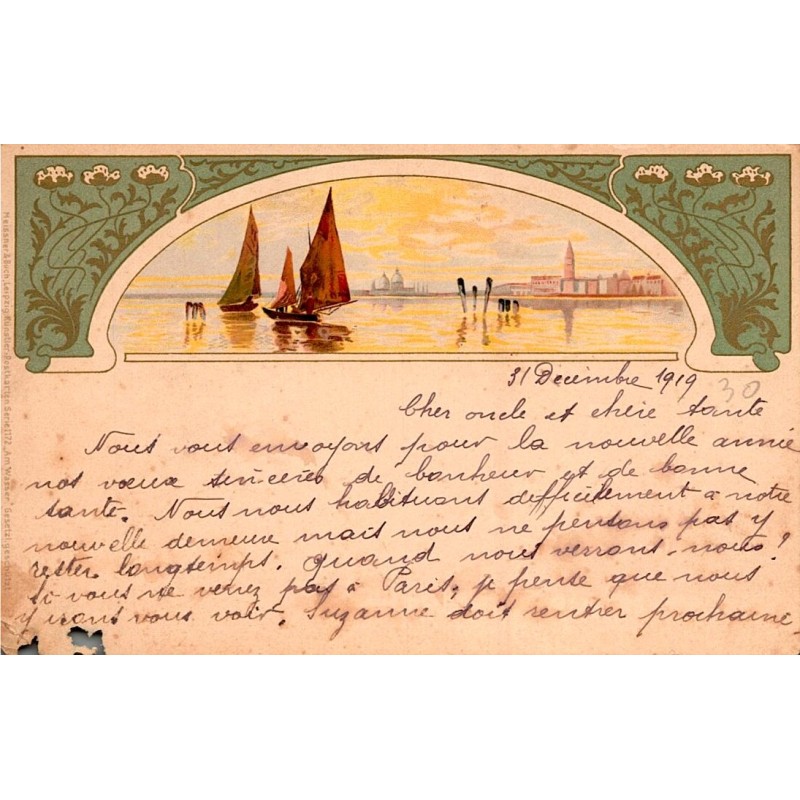 31 Decembre 1919
30
Cher oncle et chère tante
Nous vous envoyons pour la nouvelle année
nos vœux sincères de bonheur et de bonne
santé. Nous nous habituons difficilement à notre
nouvelle demeure mais nous ne pensons pas y
rester longtemps. Quand nous verrons-nous?
Si vous ne venez pas à Paris, je pense que nous
y irons vous voir. Suzanne doit rentrer prochaine-
Meissner & Buch, Leipzig, Künstler-Postkarten Serie 1172 „Am Wasser“